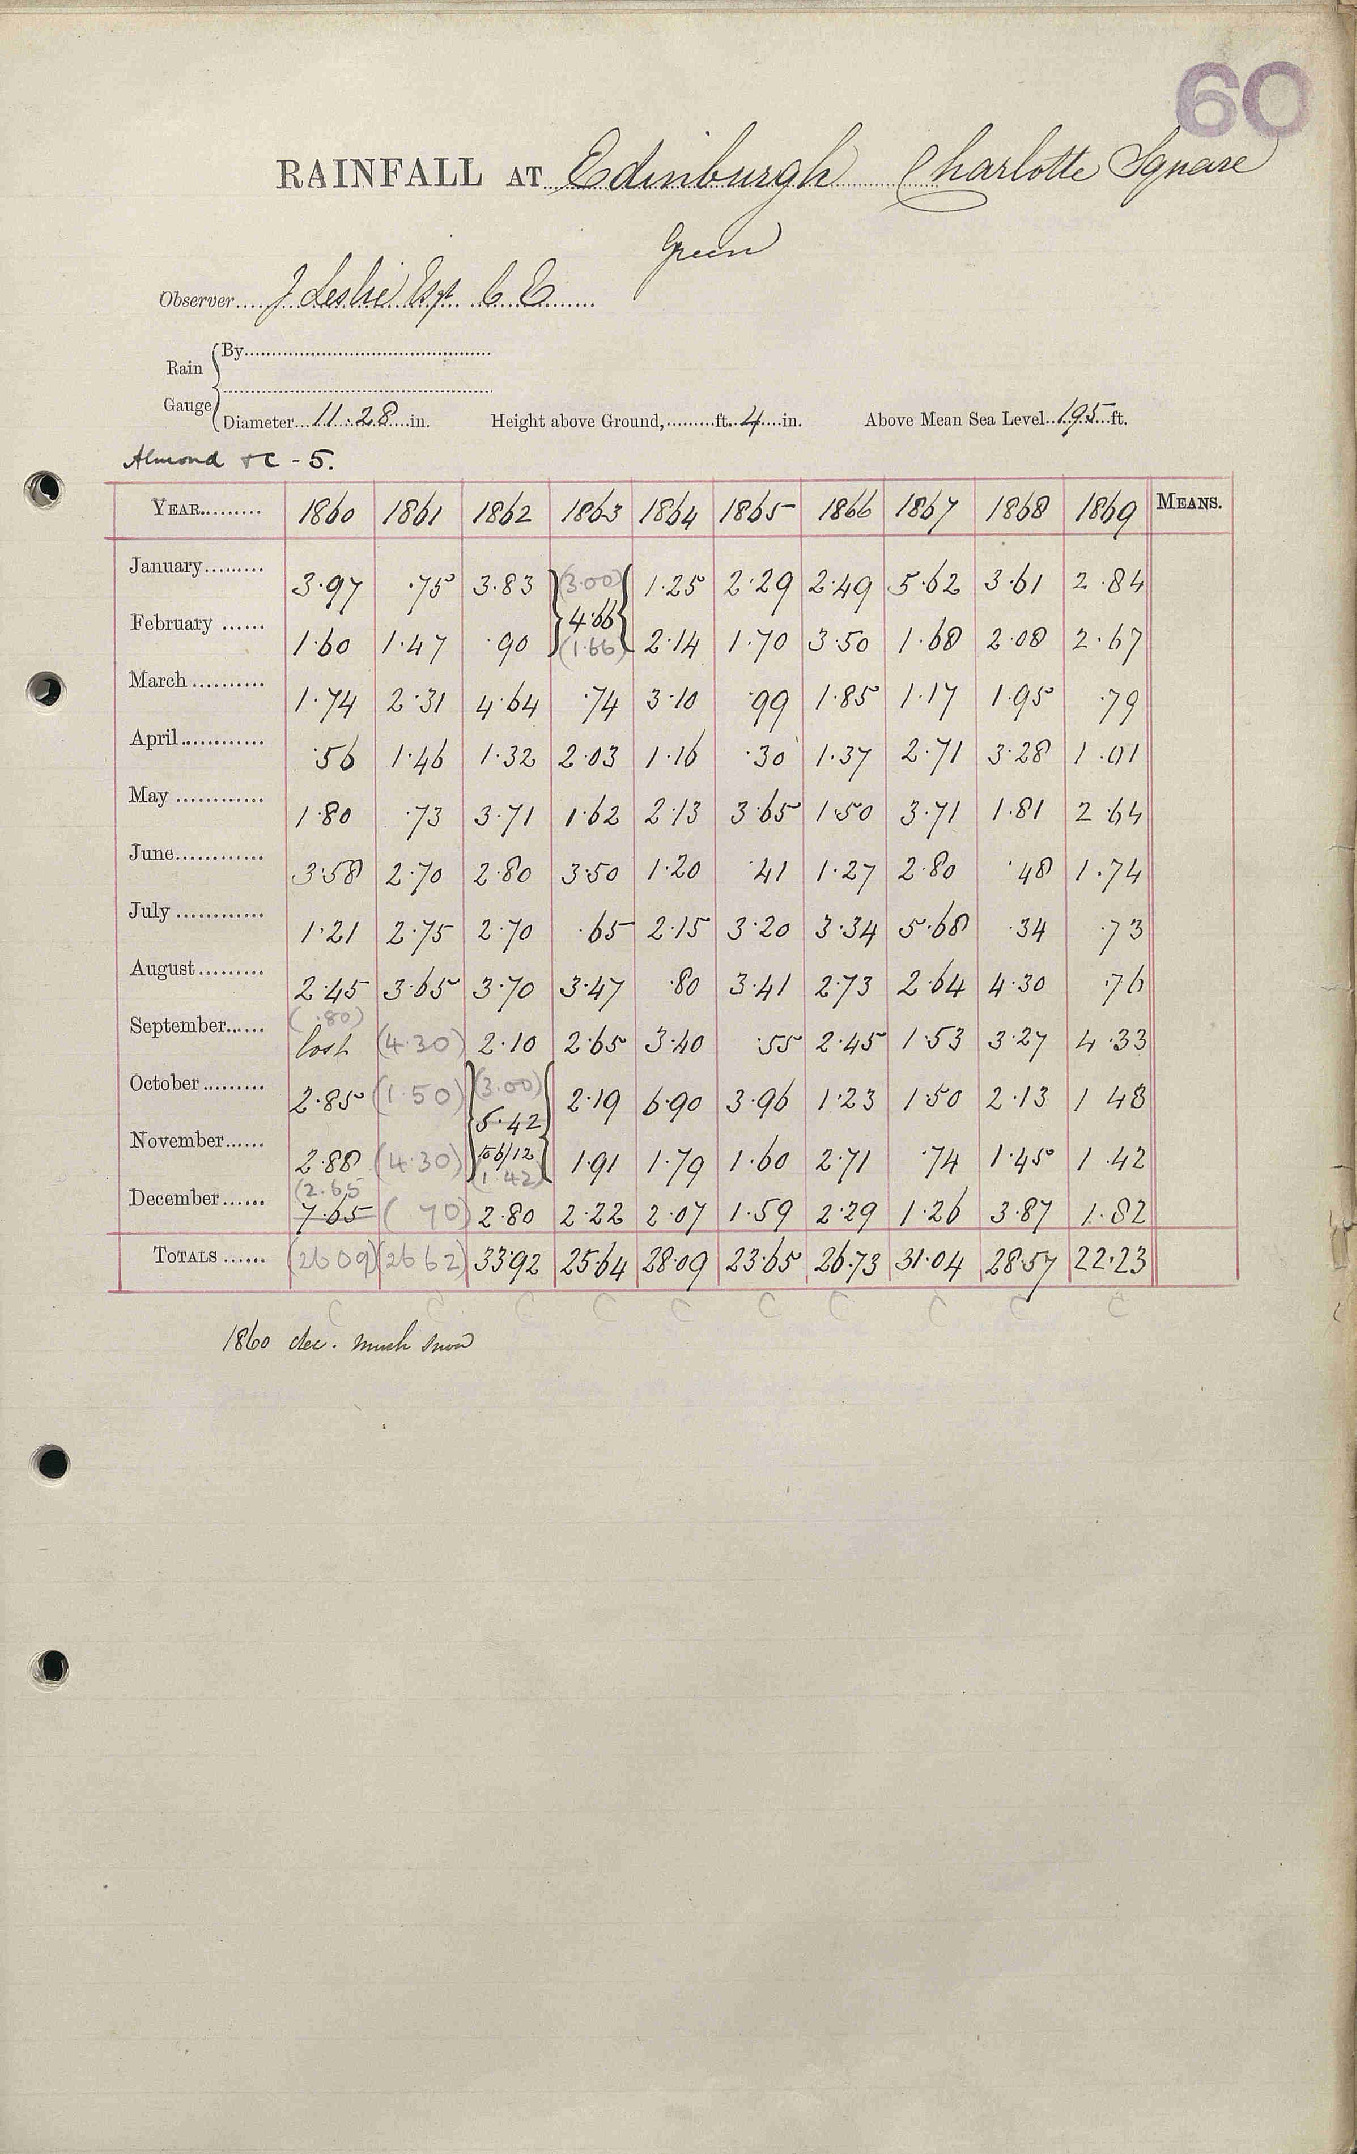 60
RAINFALL AT Edinburgh Charlotte Square
Green
Observer.... J Leslie Esqr. C E
Rain Gauge { By
Diameter 11.28 in. Height above Ground, ft. 4 in. Above Mean Sea Level 195 ft.
Almond &c - 5.
YEAR 1860 1861 1862 1863 1864 1865 1866 1867 1868 1869 MEANS.
January 3.97 .75 3.83 (3.00) 1.25 2.29 2.49 5.62 3.61 2.84
4.66
February 1.60 1.47 .90 (1.66) 2.14 1.70 3.50 1.68 2.08 2.67
March 1.74 2.31 4.64 .74 3.10 .99 1.85 1.17 1.95 .79
April .56 1.46 1.32 2.03 1.16 .30 1.37 2.71 3.28 1.01
May 1.80 .73 3.71 1.62 2.13 3.65 1.50 3.71 1.81 2.64
June 3.58 2.70 2.80 3.50 1.20 .41 1.27 2.80 .48 1.74
July 1.21 2.75 2.70 .65 2.15 3.20 3.34 5.68 .34 .73
August 2.45 3.65 3.70 3.47 .80 3.41 2.73 2.64 4.30 .76
(.80)
September lost (4.30) 2.10 2.65 3.40 .55 2.45 1.53 3.27 4.33
October 2.85 (1.50) (3.00) 2.19 6.90 3.96 1.23 1.50 2.13 1 48
5.42
November 2.88 (4.30) to 6/12 1.91 1.79 1.60 2.71 .74 1.45 1.42
(2.65 (1.42)
December 7.65 ( 70) 2.80 2.22 2.07 1.59 2.29 1.26 3.87 1.82
TOTALS (26 09) (26 62) 33.92 25.64 28.09 23.65 26.73 31.04 28.57 22.23
C C C C C C C C C C
1860 dec. much snow